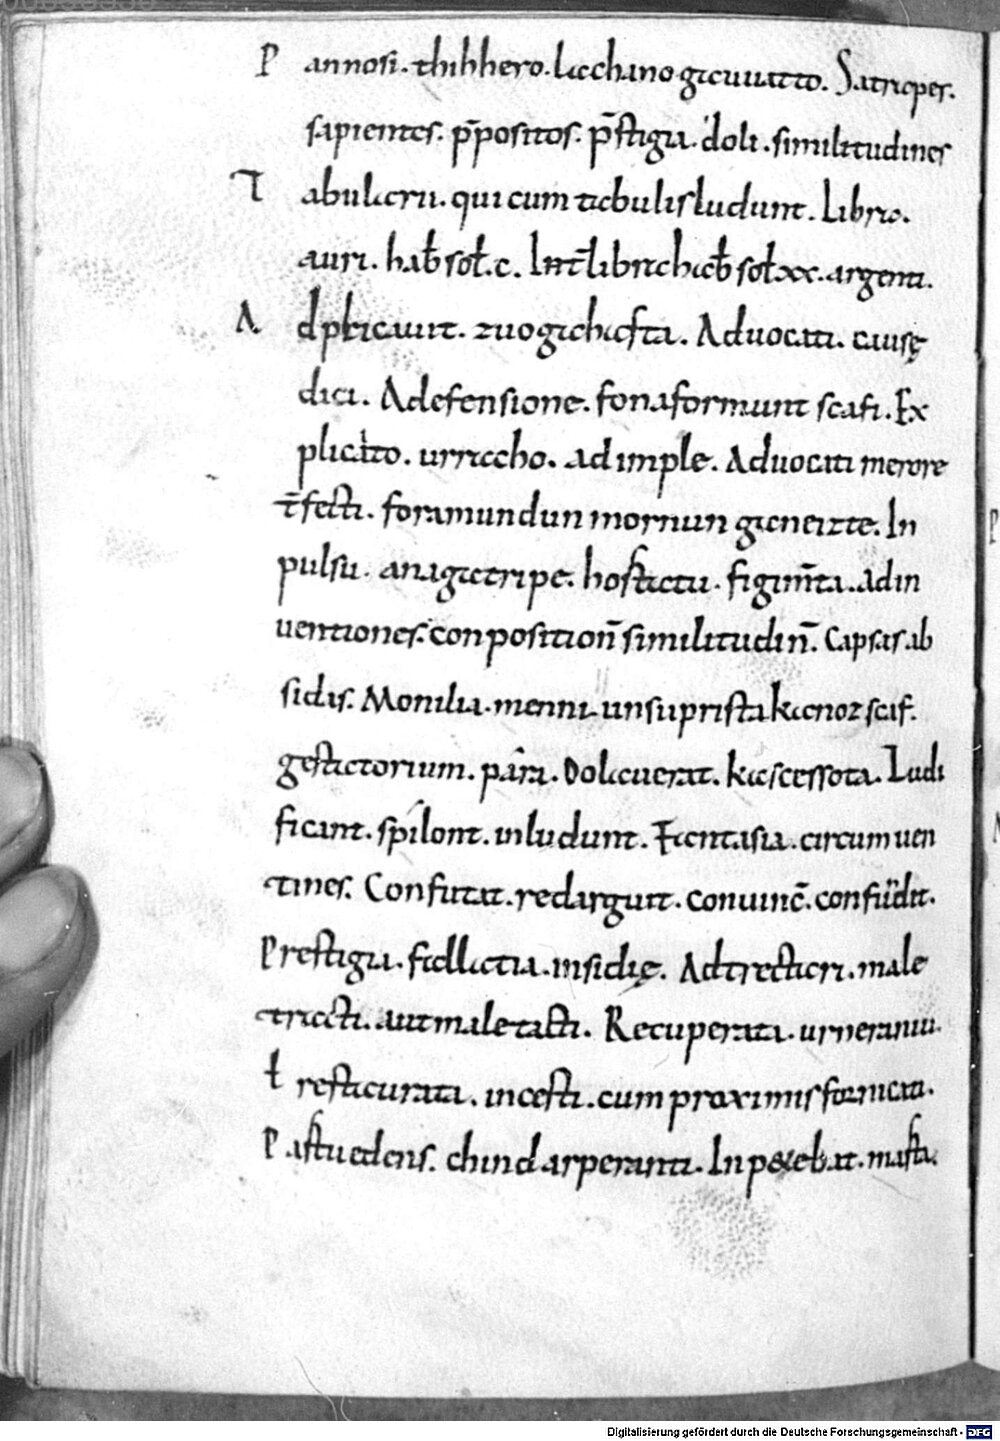 Pannosi. thihhero. lacchano giuuatto. Satrapes.
sapientes. p̄positos. p̄stigia. doli. similitudines
Tabularii. qui cum tabulis ludunt. Libra.
auri. hab̄ sol̄. c. Int̄ libra hab̄ sol̄ xx. argenti.
Ad plicauit. zuogihafta. Aduocati. causę
dici. A defensione. fona formunt scafi. Ex
plicato. urraccho. ad imple. Aduocati merore
t̄fecti. foramundun mornun gieneizte. In
pulsu. anagatripe. hostatu. figim̄ta. adin
uentiones. conposition̄ similitudin̄. Capsas ab
sidis. Monilia. menni unsuprista kanoz scaf.
gestatorium. para. Dolauerat. kascessota. Ludi
ficant. spilont. inludunt. Fantasia. circumuen
tines. Confutat. redarguit. conuinc̄. confudit.
Prestigia. fallatia. insidię. Adtrectari. male
tracti. aut male tacti. Recuperata. urneraniu.
ł restaurata. incesti. cum proximis fornicati.
Pastu edens. chindarperanti. In p&ebat. masta.